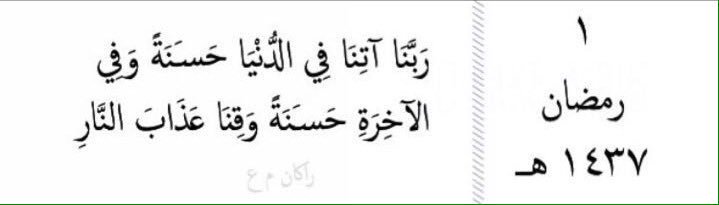 ١
رمضان
١٤٣٧ هـ
رَبَّنَا آتِنَا فِي الدُّنْيَا حَسَنَةً وَفِي
الآخِرَةِ حَسَنَةً وَقِنَا عَذَابَ النَّارِ
راكان م ع